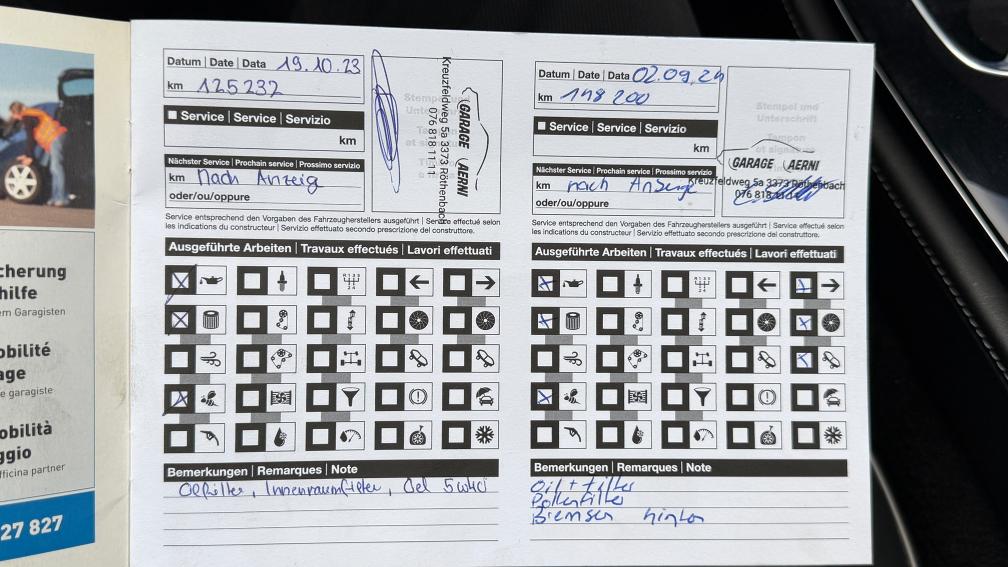 cherung
hilfe
em Garagisten
obilité
age
e garagiste
obilità
ggio
fficina partner
27 827
Datum | Date | Data 19.10.23
km 125232
Service | Service | Servizio
km
Nächster Service | Prochain service | Prossimo servizio
km Nach Anzeig
oder/ou/oppure
GARAGE AERNI
Kreuzfeldweg 5a 3373 Röthenbach
076 818 11 11
Service entsprechend den Vorgaben des Fahrzeugherstellers ausgeführt | Service effectué selon
les indications du constructeur | Servizio effettuato secondo prescrizione del costruttore.
Ausgeführte Arbeiten | Travaux effectués | Lavori effettuati
Bemerkungen | Remarques | Note
Oelfilter, Innenraumfilter, Oel
Datum | Date | Data 02.09.24
km 148 200
Service | Service | Servizio
km
Nächster Service | Prochain service | Prossimo servizio
km nach Anzeige
oder/ou/oppure
Stempel und
Unterschrift
Tampon
et signature
GARAGE AERNI
Kreuzfeldweg 5a 3373 Röthenbach
076 818
Service entsprechend den Vorgaben des Fahrzeugherstellers ausgeführt | Service effectué selon
les indications du constructeur | Servizio effettuato secondo prescrizione del costruttore.
Ausgeführte Arbeiten | Travaux effectués | Lavori effettuati
Bemerkungen | Remarques | Note
Oil + Filter
Pollenfilter
Bremsen hinten